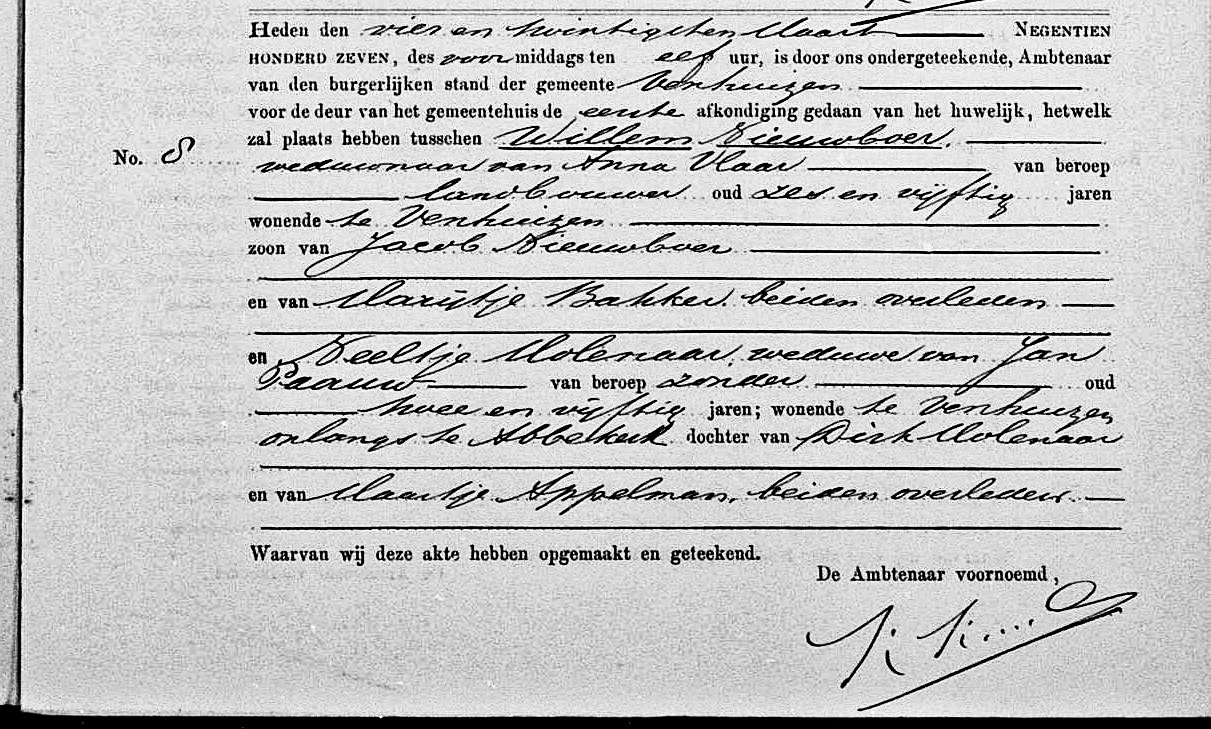 Heden den vier en twintigsten Maart NEGENTIEN
HONDERD ZEVEN, des voormiddags ten elf uur, is door ons ondergeteekende, Ambtenaar
van den burgerlijken stand der gemeente Venhuizen
voor de deur van het gemeentehuis de eerste afkondiging gedaan van het huwelijk, hetwelk
zal plaats hebben tusschen Willem Nieuwboer,
No. 8 weduwnaar van Anna Vlaar van beroep
landbouwer oud zes en vijftig jaren
wonende te Venhuizen
zoon van Jacob Nieuwboer
en van Marijtje Bakker, beiden overleden
en Neeltje Molenaar, weduwe van Jan
Paauw van beroep zonder oud
twee en vijftig jaren; wonende te Venhuizen
onlangs te Abbekerk dochter van Dirk Molenaar
en van Maartje Appelman, beiden overleden
Waarvan wij deze akte hebben opgemaakt en geteekend.
De Ambtenaar voornoemd,